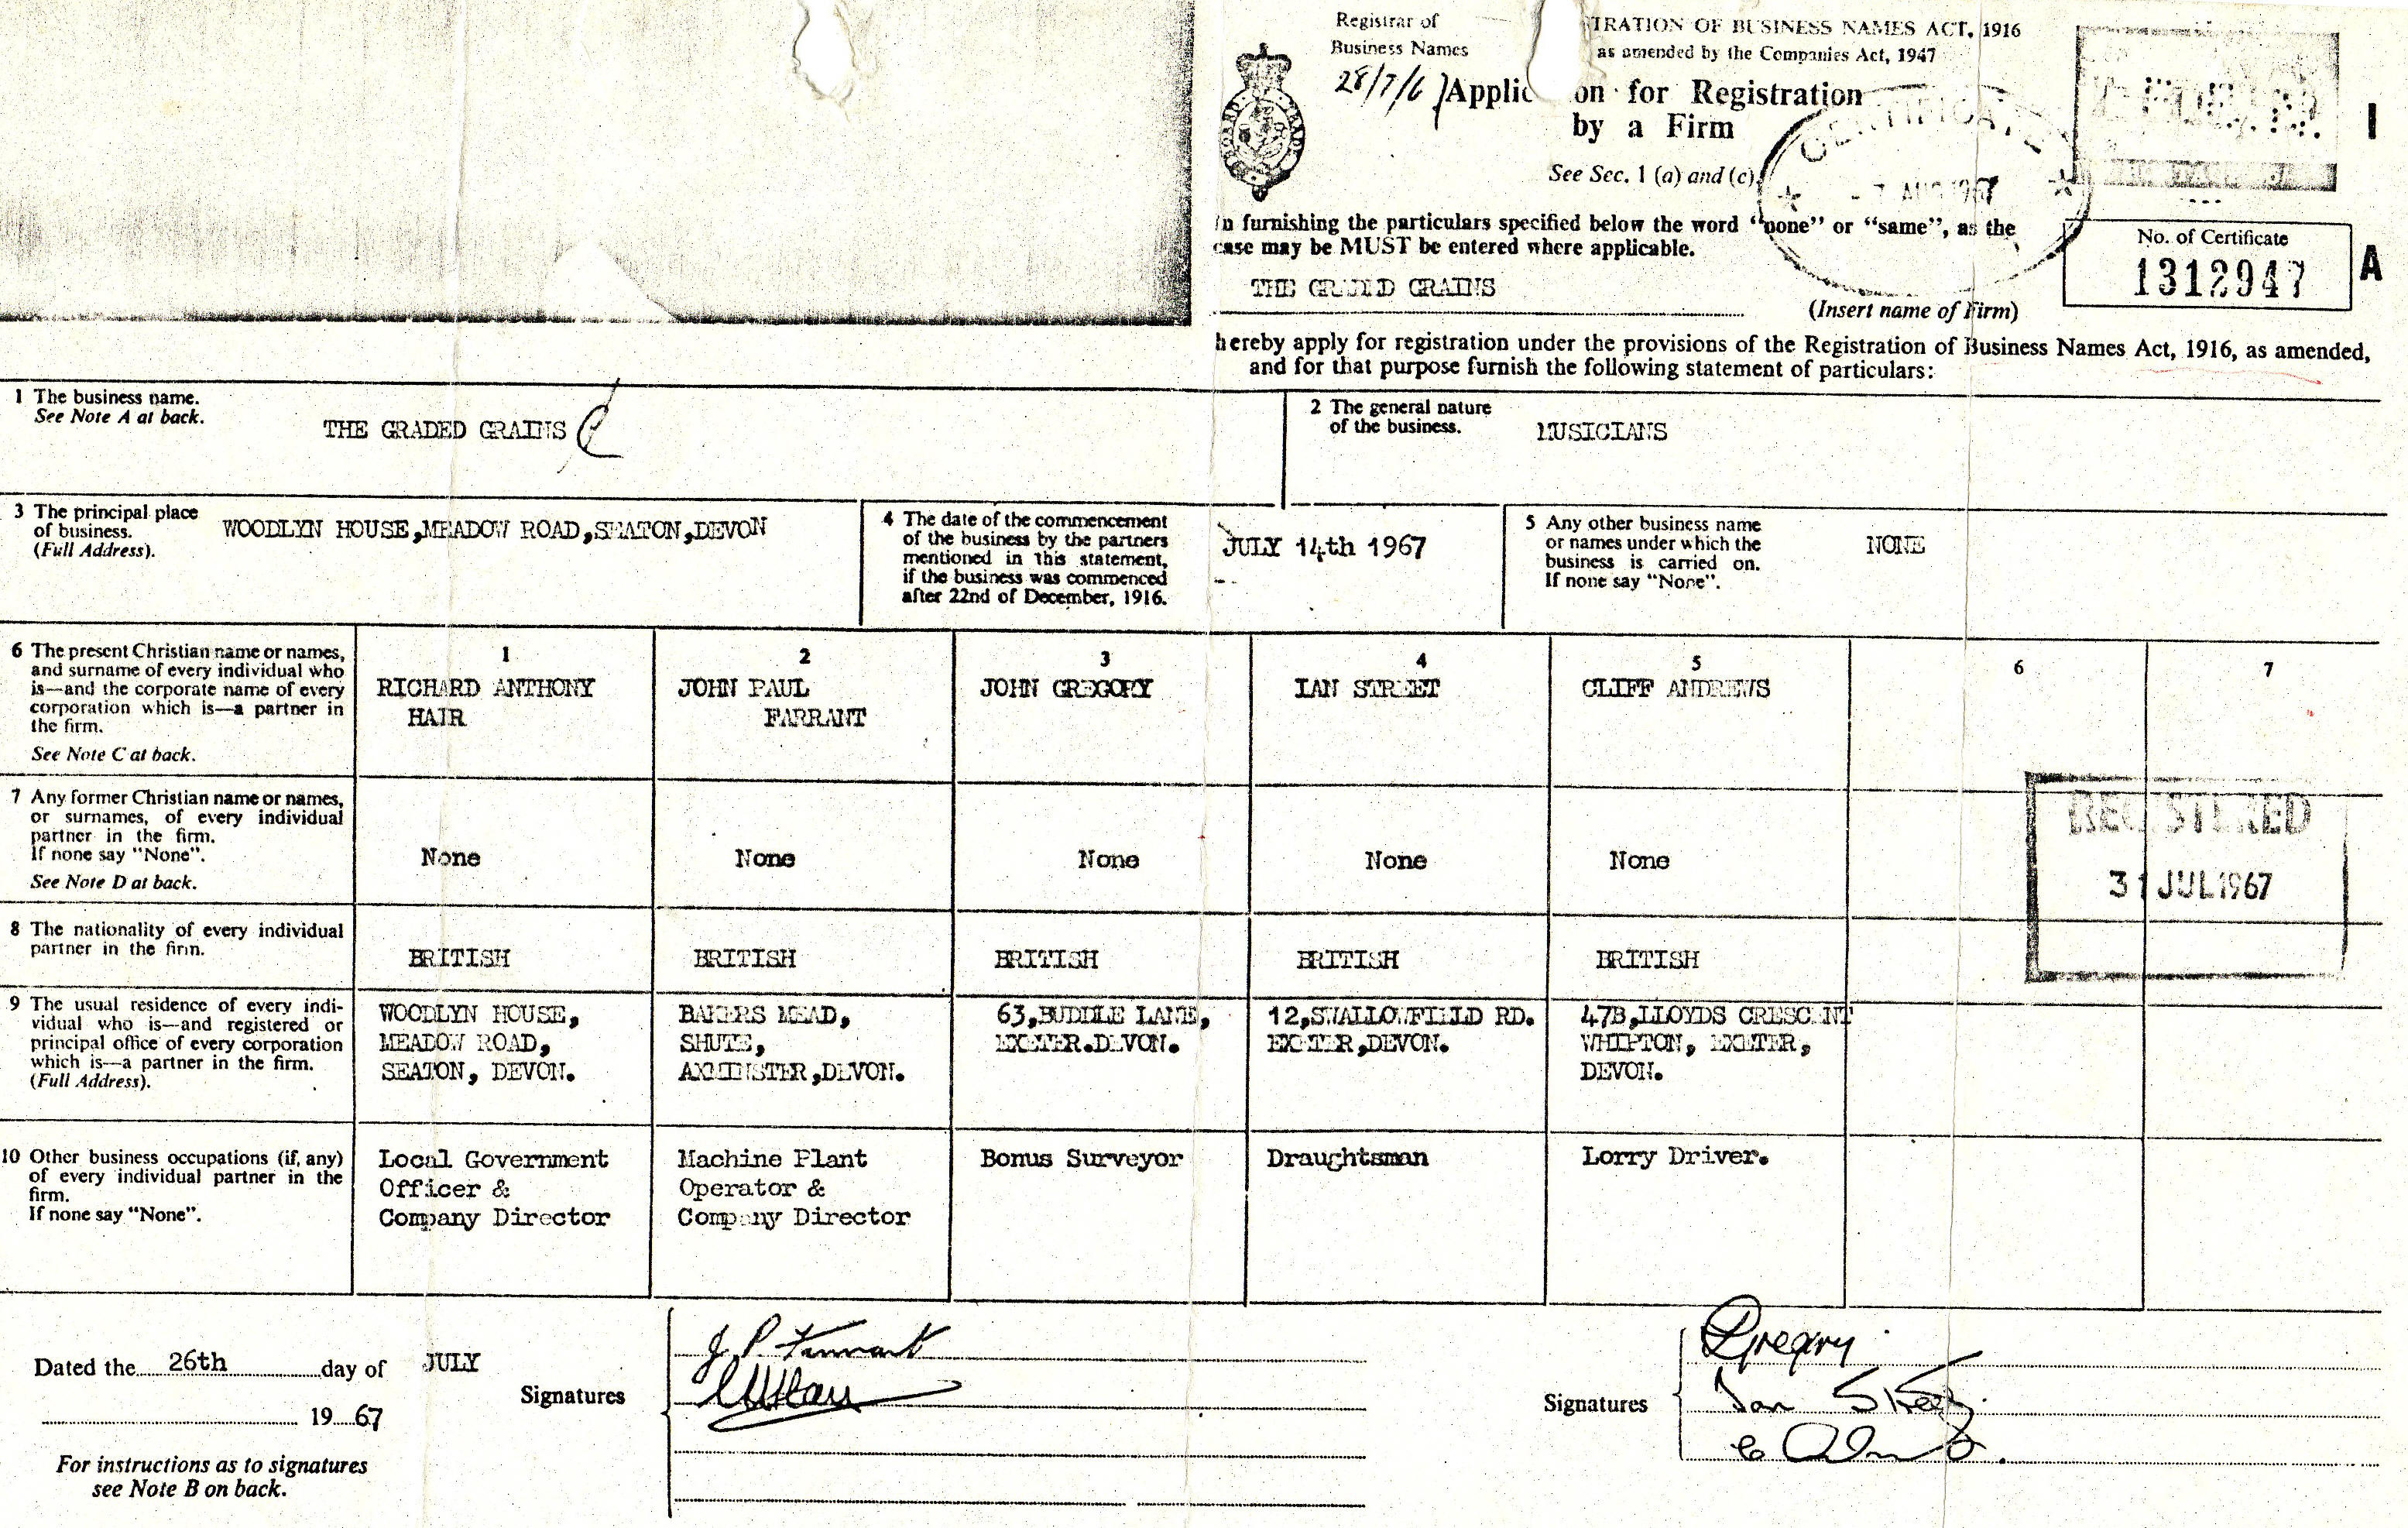 Registrar of
Business Names
28/7/6
TRATION OF BUSINESS NAMES ACT, 1916
as amended by the Companies Act, 1947
Applic on for Registration
by a Firm
See Sec. 1 (a) and (c).
CERTIFICATE
AUG 1967
BOARD TRADE
I
In furnishing the particulars specified below the word “none” or “same”, as the
case may be MUST be entered where applicable.
No. of Certificate
1312947
A
THE GRADED GRAINS
(Insert name of Firm)
hereby apply for registration under the provisions of the Registration of Business Names Act, 1916, as amended,
and for that purpose furnish the following statement of particulars:
1 The business name.
See Note A at back.
THE GRADED GRAINS
2 The general nature
of the business.
MUSICIANS
3 The principal place
of business.
(Full Address).
WOODLYN HOUSE,MEADOW ROAD,SEATON,DEVON
4 The date of the commencement
of the business by the partners
mentioned in this statement,
if the business was commenced
after 22nd of December, 1916.
JULY 14th 1967
5 Any other business name
or names under which the
business is carried on.
If none say “None”.
NONE
6 The present Christian name or names,
and surname of every individual who
is—and the corporate name of every
corporation which is—a partner in
the firm.
See Note C at back.
1
RICHARD ANTHONY
HAIR
2
JOHN PAUL
FARRANT
3
JOHN GREGORY
4
IAN STREET
5
CLIFF ANDREWS
6
7
7 Any former Christian name or names,
or surnames, of every individual
partner in the firm.
If none say “None”.
See Note D at back.
None
None
None
None
None
REGISTERED
31 JUL 1967
8 The nationality of every individual
partner in the firm.
BRITISH
BRITISH
BRITISH
BRITISH
BRITISH
9 The usual residence of every indi-
vidual who is—and registered or
principal office of every corporation
which is—a partner in the firm.
(Full Address).
WOODLYN HOUSE,
MEADOW ROAD,
SEATON, DEVON.
BAKERS MEAD,
SHUTE,
AXMINSTER,DEVON.
63,BUDDLE LANE,
EXETER.DEVON.
12,SWALLOWFIELD RD.
EXETER,DEVON.
47B,LLOYDS CRESCENT
WHIPTON, EXETER,
DEVON.
10 Other business occupations (if, any)
of every individual partner in the
firm.
If none say “None”.
Local Government
Officer &
Company Director
Machine Plant
Operator &
Company Director
Bonus Surveyor
Draughtsman
Lorry Driver.
Dated the 26th day of JULY
19 67
For instructions as to signatures
see Note B on back.
Signatures
J. P. Farrant
Signatures
Gregory
Ian Street